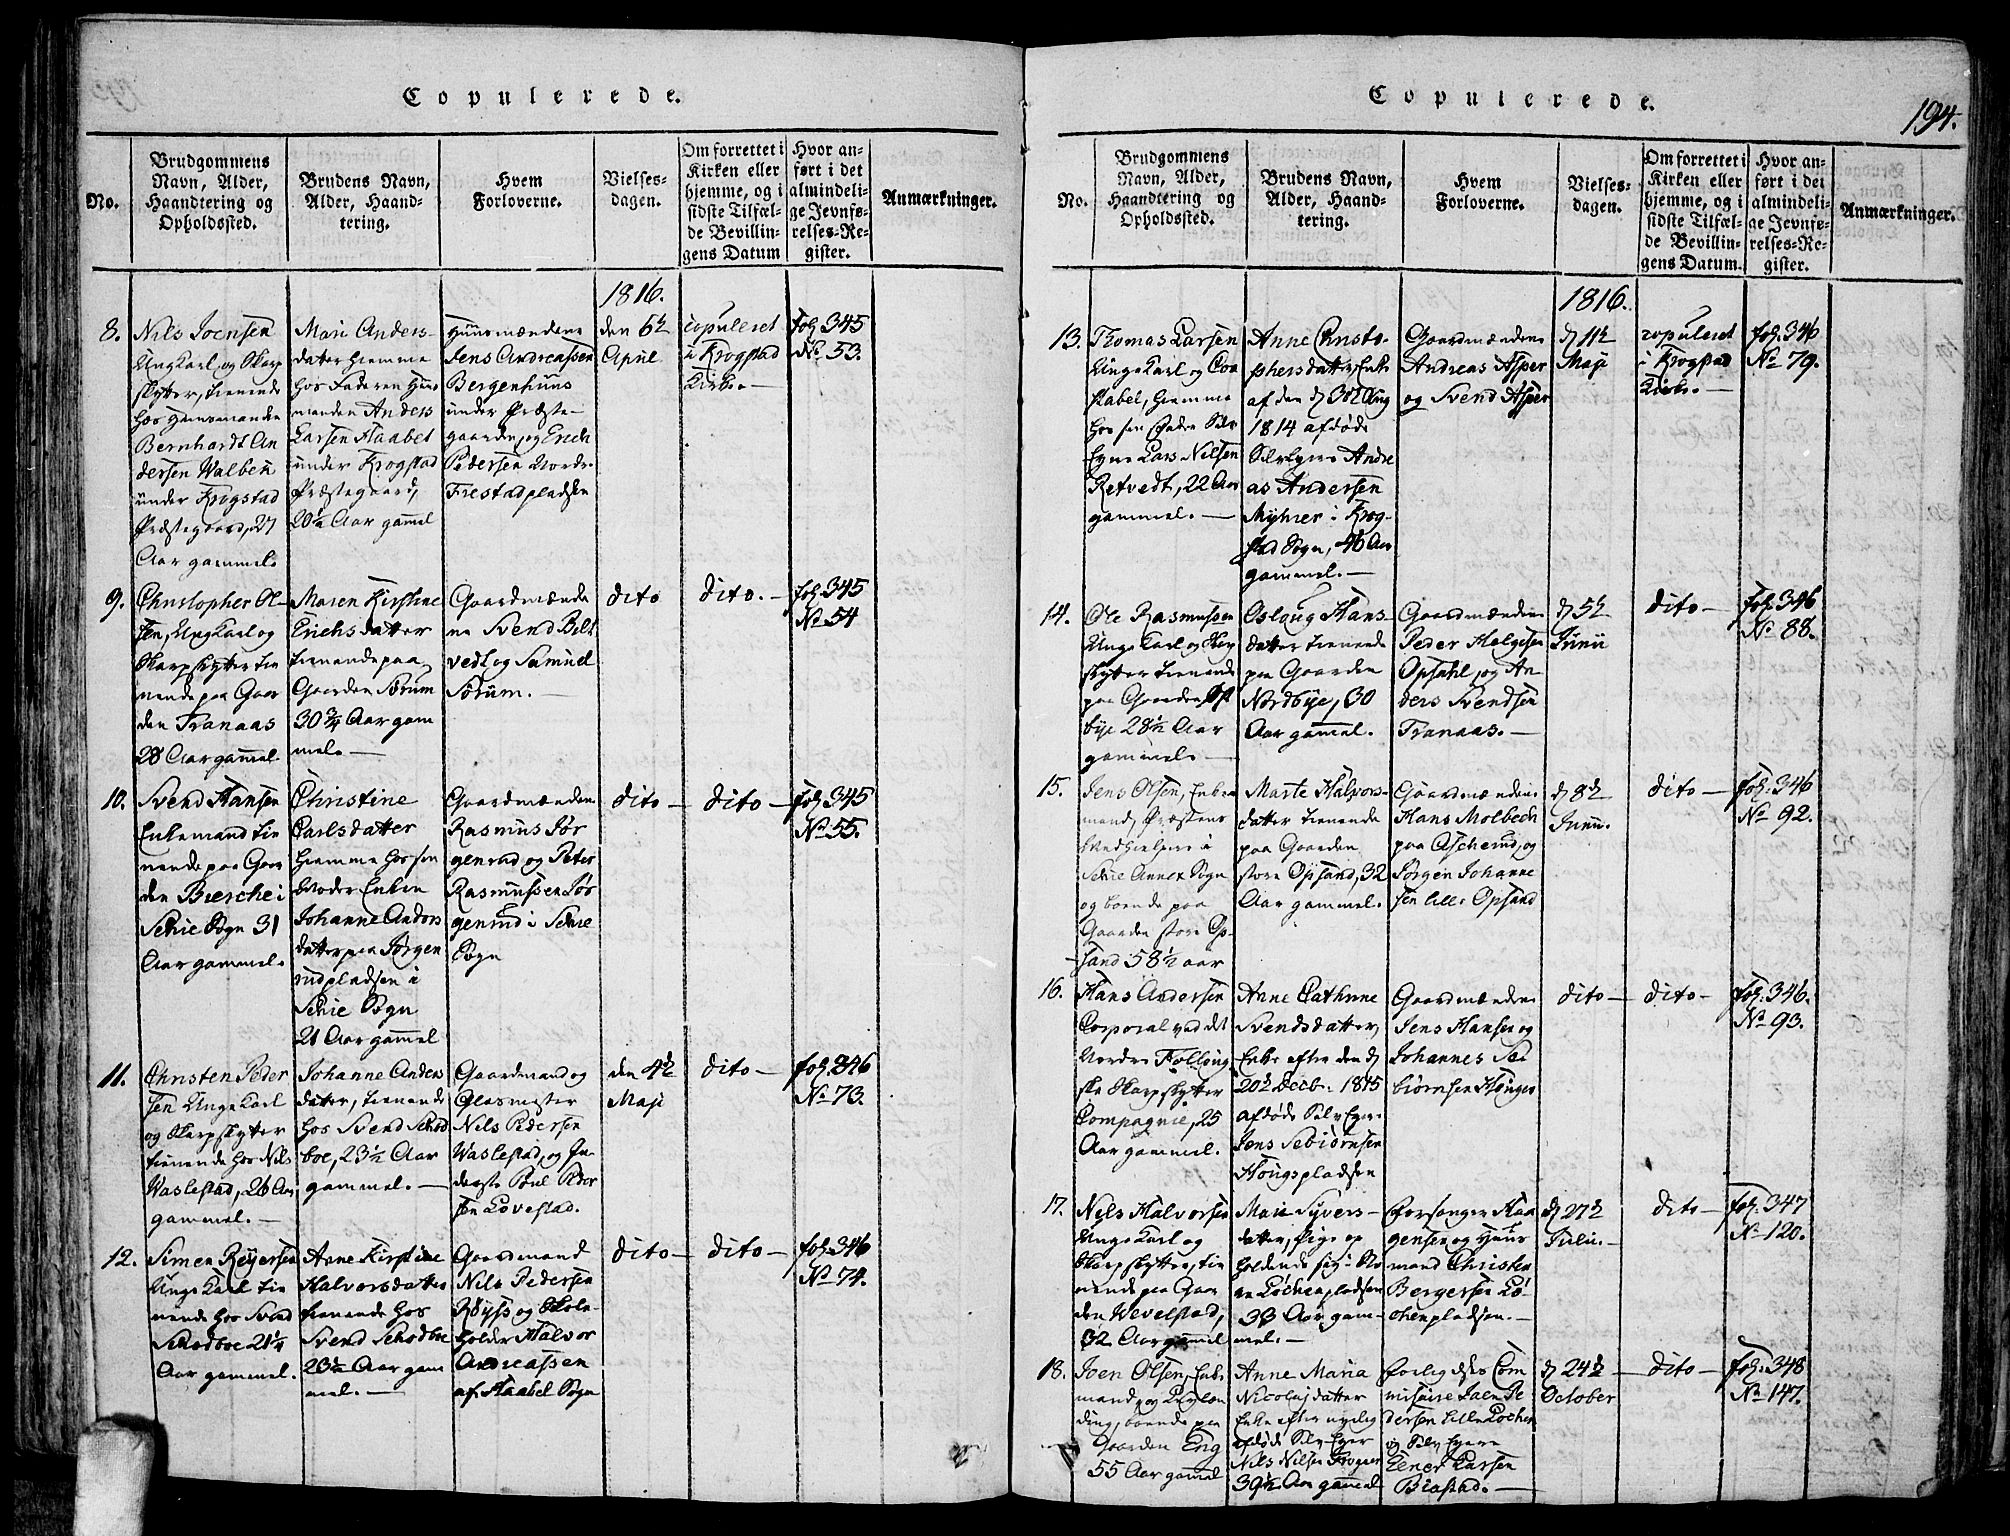 Copulerede.
No.
Brudgommens
Navn, Alder,
Haandtering og
Opholdssted.
Brudens Navn,
Alder, Haand-
tering.
Hvem
Forloverne.
Vielses-
dagen.
Om forrettet i
Kirken eller
hjemme, og i
sidste Tilfæl-
de Bevillin-
gens Datum
Hvor an-
ført i det
almindeli-
ge Jevnfø-
relses-Re-
gister.
Anmærkninger.
1816.
8.
Nils Joensen
Ungkarl og Skarp
skytter, tienende
hos Huusmanden
Bernhardt An
dersen Walbek
under Krogstad
Præstegaard, 27
Aar gammel.
Mari Anders-
datter hiemme
hos Faderen Huus
manden Anders
Larsen Haabet
under Krogstad
Præstegaard,
20¼ Aar gam̄el
Huusmændene
Jens Andreassen
Bergenhuus
under Præste-
gaarden, og Erich
Pedersen Nordre
Frestadpladsen
den 6te
April
copuleret
i Krogstad
Kirke. —
fol. 345
No 53.
9.
Christopher Ol-
sen, Ung Karl og
Skarpskytter tie
nende paa Gaar
den Tranaas
28 Aar gam̄el.
Maren Kirstine
Erichsdatter
tienende paa
Gaarden Sørum
30¾ Aar gam
mel. —
Gaardmænde
ne Svend Belt
vedt og Samuel
Sørum. —
dito
dito. —
fol. 345
No 54
10.
Svend Hansen
Enkemand tie
nende paa Gaar
den Bierche i
Schie Sogn 31
Aar gammel.
Christine
Carlsdatter
hiemme hos sen
Moder Enken
Johanne Anders
datter paa Jørgen
rudpladsen i
Schie Sogn
21 Aar gam̄el
Gaardmændene
Rasmus Jør
genrud og Peter
Rasmussen Jør
genrud i Schie
Sogn
dito —
dito —
fol. 345
No 55.
11.
Christen Peder
sen Unge Karl
og Skarpskytter
tienende hos Nils
Waslestad, 26 Aar
gammel. —
Johanne Anders
datter, tienende
hos Svend Schod
boe, 23½ Aar
gammel. —
Gaardmand og
Glasmester
Nils Pedersen
Waslestad, og In-
derste Poul Peder
sen Lovestad.
den 4de
Maji
dito —
fol. 346
No 73.
12.
Simen Reyersen
Unge Karl tie
nende hos Svend
Schodboe 21¼
Aar gammel.
Anne Kirstine
Halvorsdatter
tienende hos
Svend Schodboe
23½ Aar gam
mel. —
Gaardmand
Nils Pedersen
Røyss og Skole
holder Halvor
Andreassen
af Haabel Sogn
dito —
dito —
fol. 346
No 74.
Copulerede.
194.
No.
Brudgommens
Navn, Alder,
Haandtering og
Opholdssted.
Brudens Navn,
Alder, Haand-
tering.
Hvem
Forloverne.
Vielses-
dagen.
Om forrettet i
Kirken eller
hjemme, og i
sidste Tilfæl-
de Bevillin-
gens Datum.
Hvor an-
ført i det
almindeli-
ge Jevnfø-
relses-Re-
gister.
Anmærkninger.
1816.
13.
Thomas Larsen
Unge Karl og Coa
stabel, hiemme
hos sin Fader Selv
Eyer Lars Nilsen
Retvedt, 22 Aar
gammel. —
Anne Christo-
phersdatter, Enke
af den d 30te Aug
1814 afdøde
Selveyer Andre
as Andersen
Myhrer i Krog-
stad Sogn, 46 Aar
gammel. —
Gaardmændene
Andreas Asper
og Svend Asper
d 11te
Maji
copuleret
i Krogstad
Kirke. —
fol. 346
No 79.
14.
Ole Rasmussen
Unge Karl og Skarp
skytter tienende
paa Gaarden
bye 28½ Aar
gammel. —
Osloug Hans-
datter tienende
paa Gaarden
Nordbye, 30
Aar gam̄el.
Gaardmændene
Peder Helgesen
Opsahl, og An-
ders Svendsen
Tranaas. —
d 5te
Junii
dito —
fol. 346
No 88.
15.
Jens Olsen, Enke
mand, Præstens
Medhielper i
Schie Annex Sogn
og boende paa
Gaarden store Op-
sand 58½ aar
Marte Halvors-
datter tienende
paa Gaarden
store Opsand, 32
Aar gammel.
Gaardmændene
Hans Molbech
paa Ascherud, og
Jørgen Johanne
sen lille Opsand
d 8de
Junii.
dito —
fol. 346
No 92.
16.
Hans Andersen
Corporal ved det
Nordre Folloug
ske Skarpskytter
Compagnie, 25
Aar gammel.
Anne Cathrine
Svendsdatter,
Enke efter den d
20de Decbr. 1815
afdøde Selv Eyer
Jens Sebiørnsen
Hougspladsen
Gaardmændene
Jens Hansen og
Johannes Se
biørnsen Houger
dito —
dito —
fol. 346.
No 93.
17.
Nils Halvorsen
Unge Karl og
Skarpskytter, tie
nende paa Gaar
den Wevelstad,
32 Aar gam̄el
Mari Syvers-
datter, Pige op
holdende sig i No
re Løchenpladsen
33 Aar gam-
mel. —
Forsanger Haa
gensen og Huus
mand Christen
Bergersen Lø-
chenpladsen. —
d 27de
Julii. —
dito —
fol. 347
No 120.
18.
Joen Olsen, Enke
mand,
ding, boende paa
Gaarden Eng
55 Aar gam̄el
Anne Maria
Nicolajdatter
Enke efter nylig
afdøde Selv Eyer
Nils Nilsen Frogner
39½ Aar gam̄el
Forligelses Com
misaire Joen Pe
dersen Lille Løchen
og Selv Eyer
Elner Larsen
Biøstad. —
d 24de
October
dito —
fol. 348
No 147.